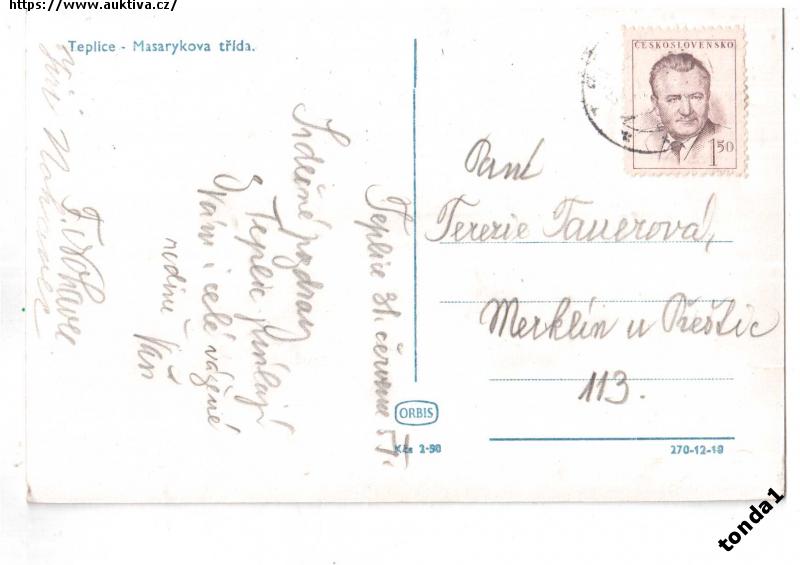 https://www.auktiva.cz/
Teplice - Masarykova třída.
ČESKOSLOVENSKO
1 50
Teplice 31. června 51.
Srdečné pozdravy
z Teplic
Vám i celé vážené
rodině
Váš
Paní
Terezie Tauerová,
Merklín u Přeštic
113.
ORBIS
Kčs 2·90
270-12-18
tonda1